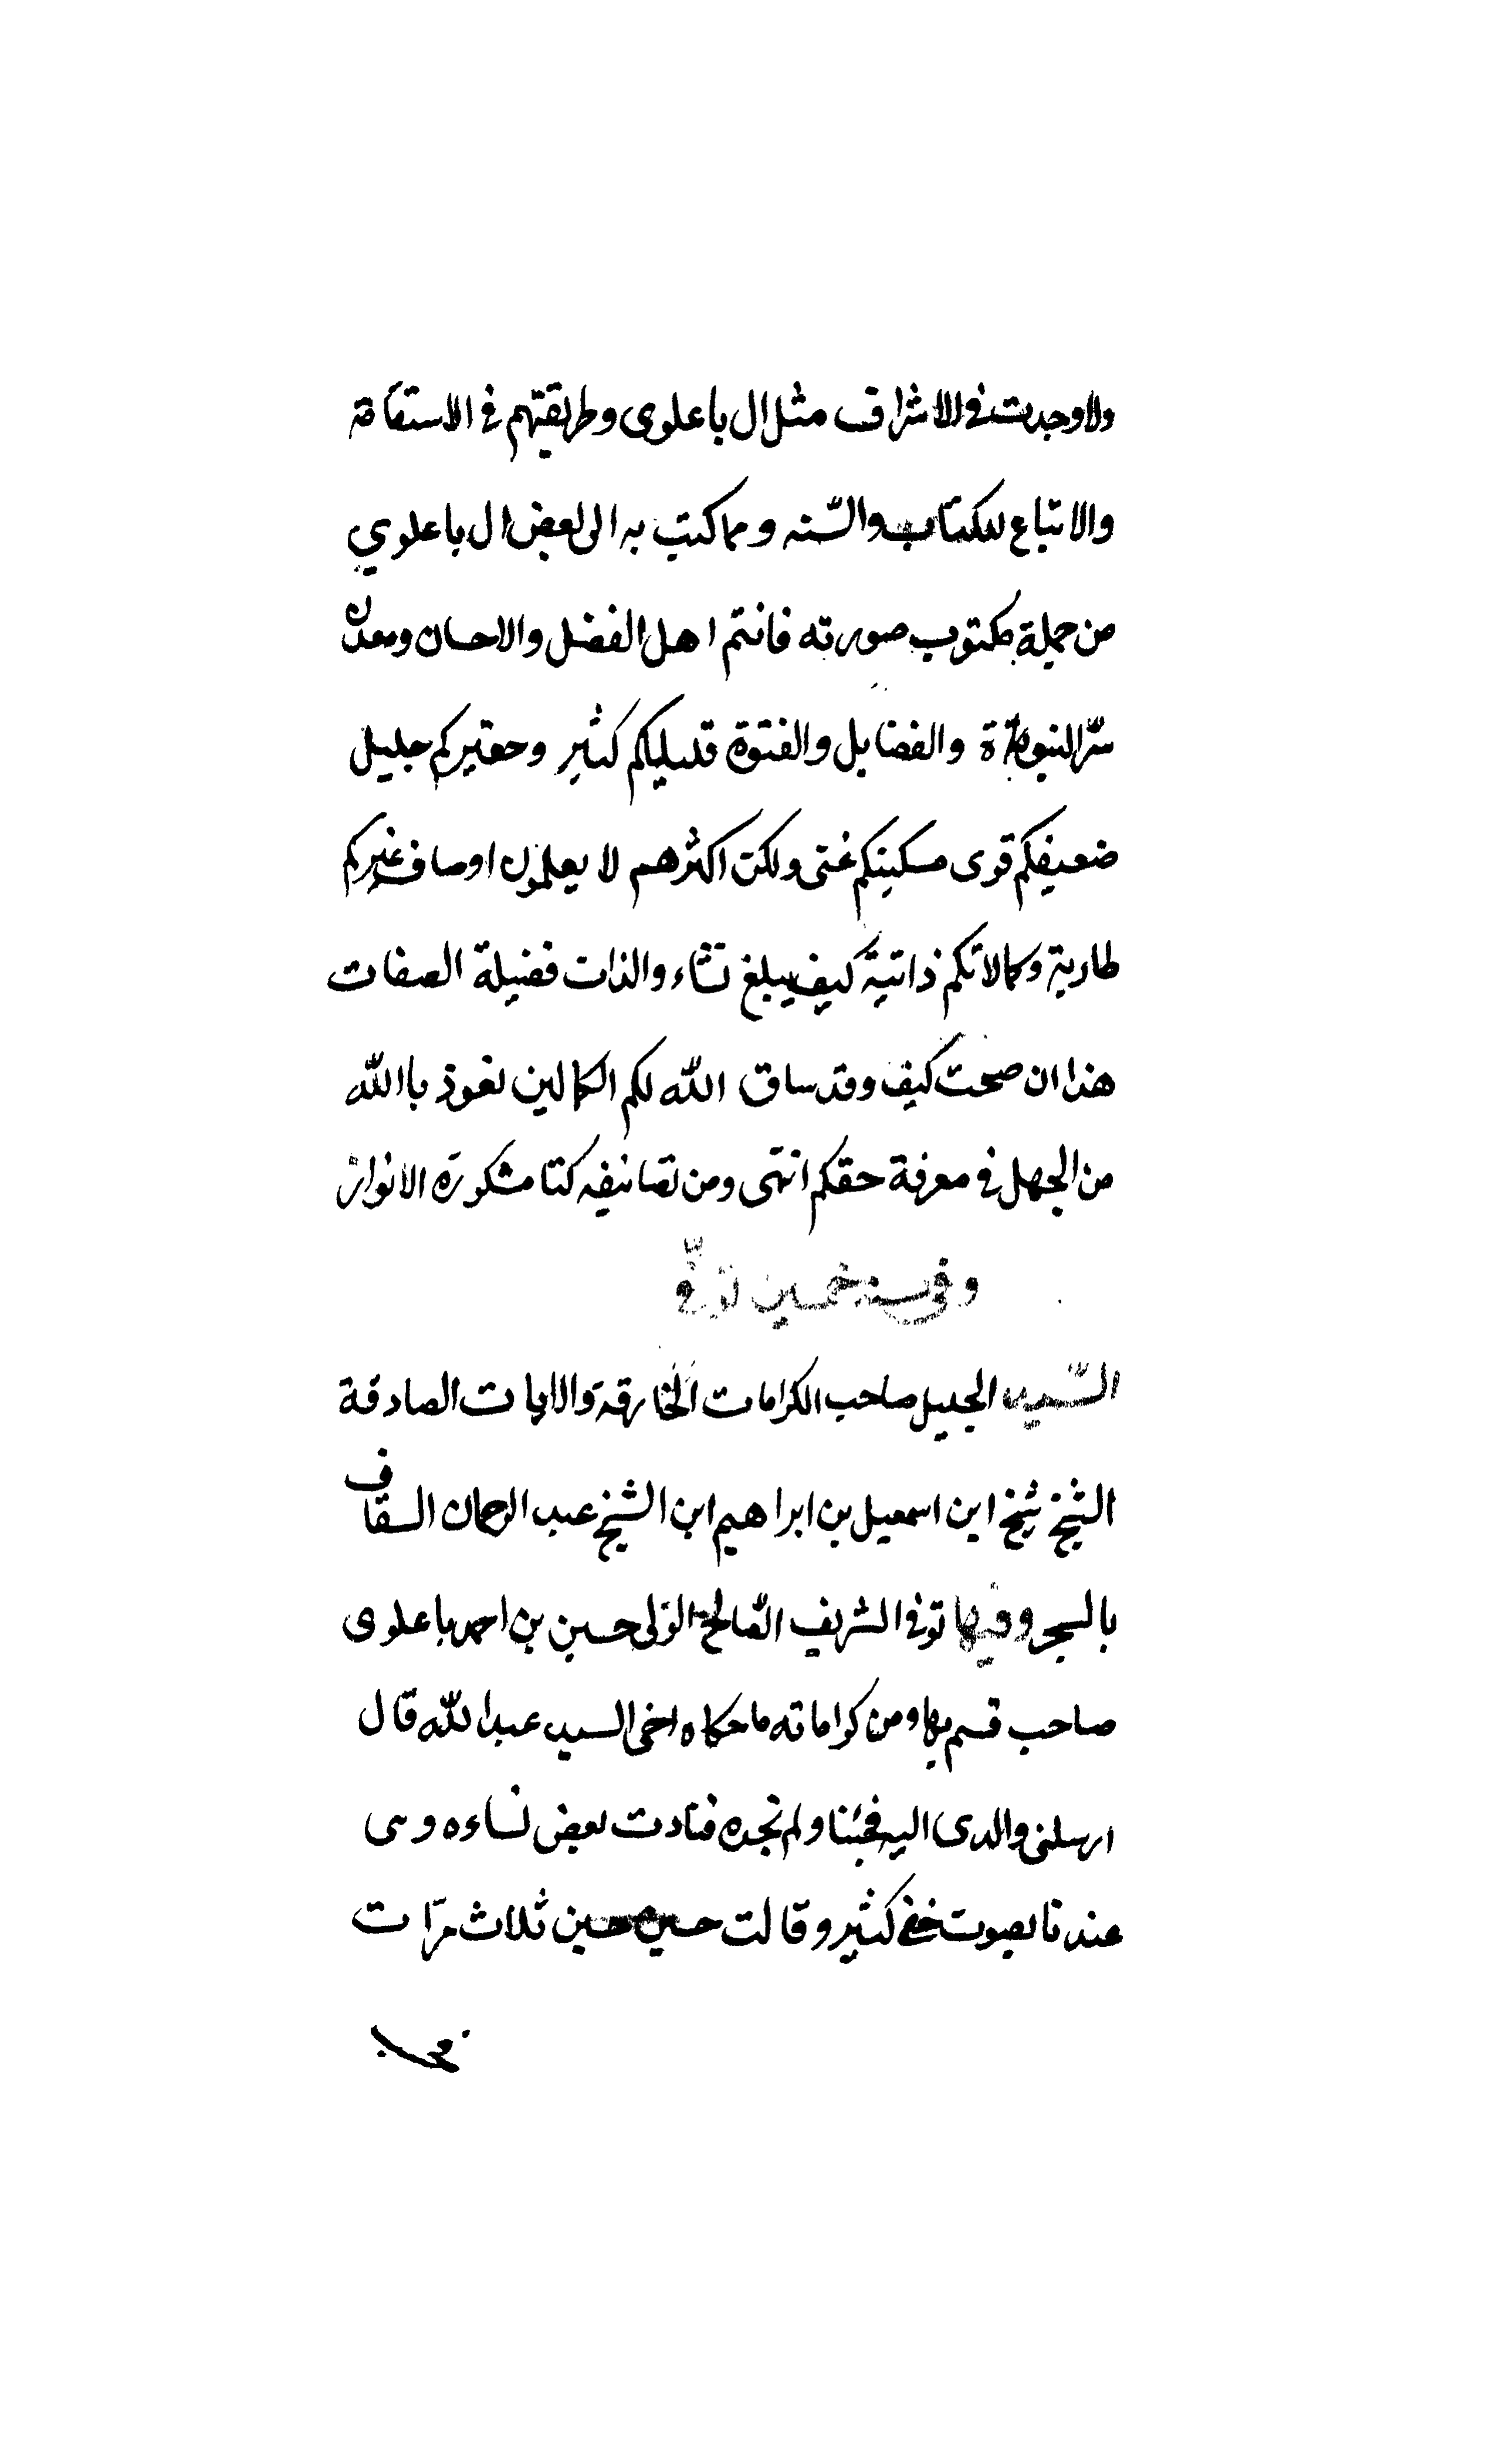 ولا وجدت في الاشراف مثل ال باعلوى وطريقتهم في الاستقامة
والاتباع للكتاب والسّنه ومما كتب به الى بعض ال باعلوي
من جملة مكتوب صورته فانتم اهل الفضل والاحسان ومعدن
سرّ النبوة والفضايل والفتوة قليلكم كثير وحقيركم جليل
ضعيفكم قوى مسكينكم غنى ولكن اكثرهم لا يعلمون اوصاف غيركم
طارية وكمالاتكم ذاتية كيف يبلغ ثناء والذات فضيلة الصفات
هذا ان صحت كيف وقد ساق الله لكم الكمالين نعوذ باالله
من الجهل في معرفة حقكم انتهى ومن تصانيفه كتا مشكوة الانوار
وفي سنه خمسين توفّي
السّيد الجليل صاحب الكرامات الخارقة والايات الصادقة
الشيخ شيخ ابن اسمعيل بن ابراهيم ابن الشيخ عبد الرحمان السقاف
بالسحر وفيها توفي الشريف الصّالح الولى حسين بن احمد باعلوى
صاحب قسم بها ومن كراماته ما حكاه اخى السيد عبد الله قال
ارسلنى والدى اليه فجئنا ولم نجده فنادت بعض نساءه وهى
عندنا بصوت خفي كثير وقالت حسين حسين ثلاث مرّات